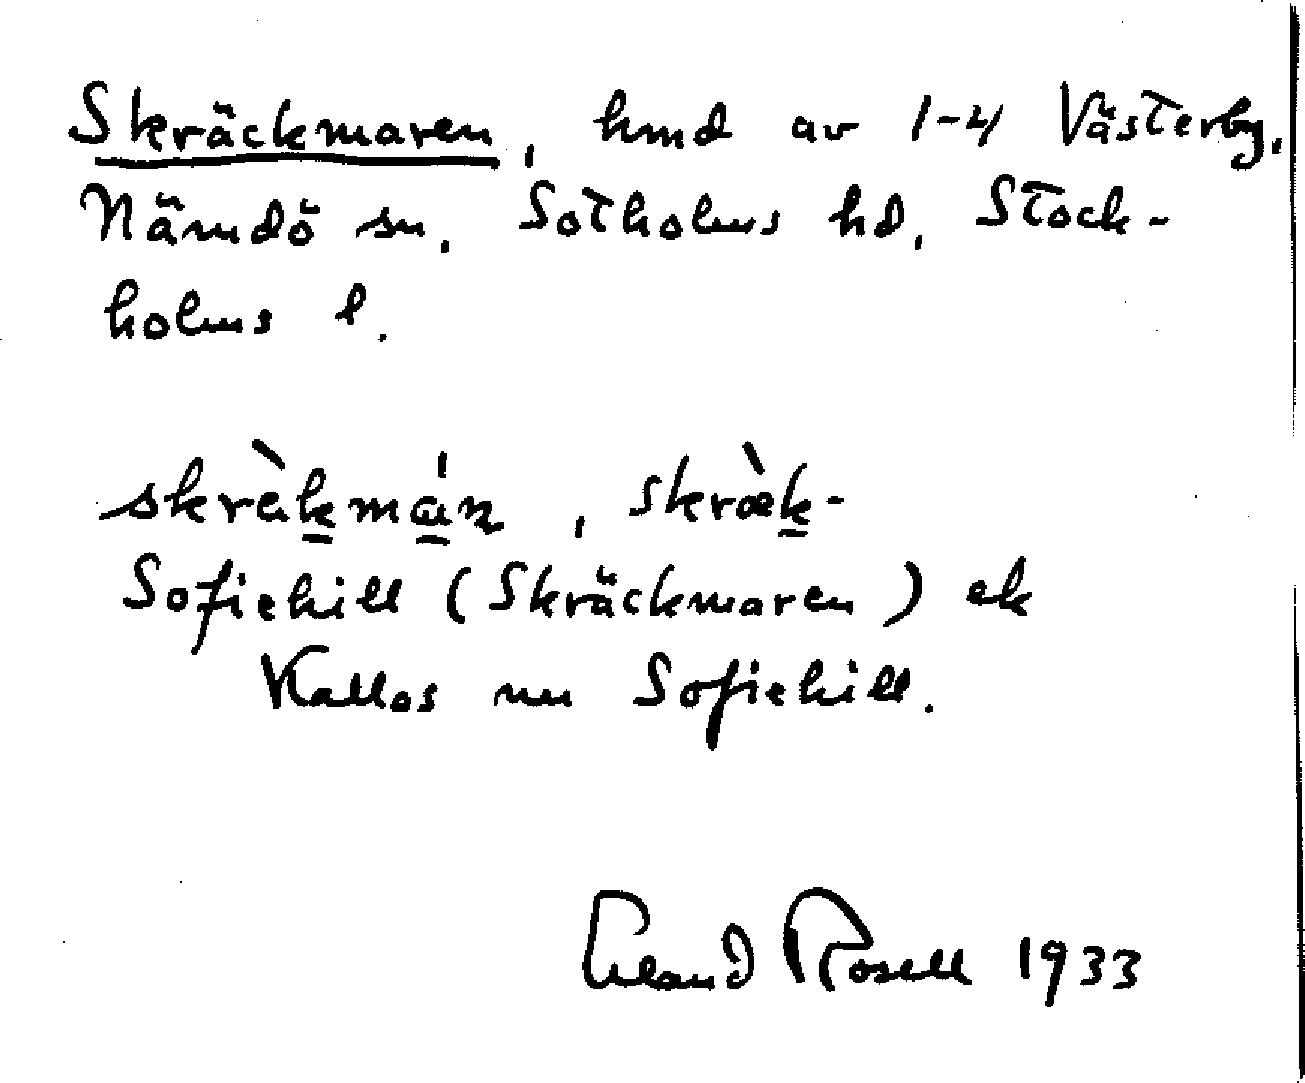 Skräckmaren, hmd av 1-4 Västerby,
Nämdö sn, Sotholms hd, Stock-
holms l.
skræ̀kmán, skræ̀k-
Sofiehill (Skräckmaren) ek
Kallas nu Sofiehill.
Erland Rosell 1933